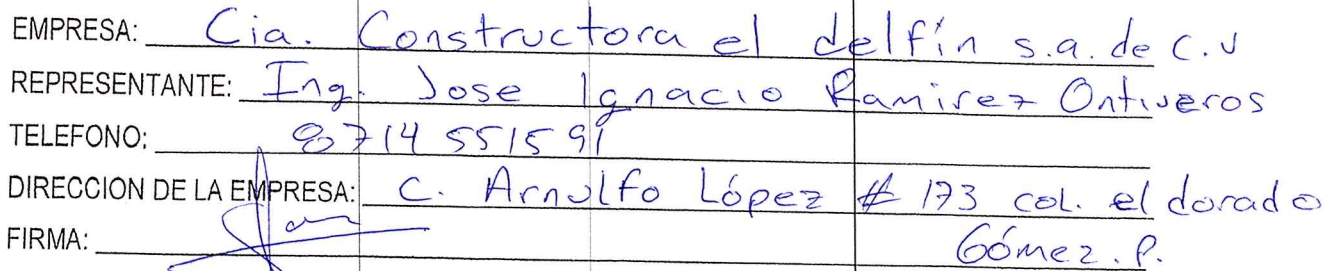 EMPRESA: Cia. Constructora el delfín s.a. de c.v
REPRESENTANTE: Ing. Jose Ignacio Ramirez Ontiveros
TELEFONO: 8714 551591
DIRECCION DE LA EMPRESA: C. Arnulfo López # 173 col. el dorado
FIRMA: Gómez. P.